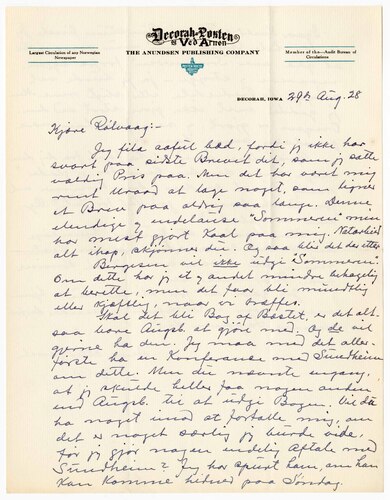 Decorah-Posten
& Ved Arnen
THE ANUNDSEN PUBLISHING COMPANY
Largest Circulation of any Norwegian
Newspaper
Member of the—Audit Bureau of
Circulations
DECORAH, IOWA 29de Aug. 28
Kjære Rölvaag:-
Jeg fila aafúl bæd, fordi jeg ikke har
svart paa sidste Brevet dit, som jeg satte
veldig Pris paa. Men det har været mig
rent uraad at lage noget, som ligner
et Brev paa aldrig saa lenge. Denne
elendige "Sommeren" men
har mest gjort Kaal paa mig.
alt ihop, skjønner du. Og saa bli det der etter
Bergesen vil ikke udgi "Sommeren"
Om dette har jeg et og andet mindre behagelig
at berette, men det faar bli mundtlig
eller kjæftlig, naar vi træffes.
Skal det bli Bog af Bæstet, er det alt-
saa bare Augsb. at gjöre med. Og de vil
gjerne ha den. Jeg maa med det aller-
förste ha en Konferanse med Sundheim
om dette. Men du nævnte engang,
at jeg skulde heller faa nogen anden
end Augsb. til at udgi Bogen. Vil du
ha noget imod at fortælle mig, om
det er noget særlig jeg burde vide,
før jeg gjør nogen endelig Aftale med
Sundheim? Jeg har spurt ham, om han
kan komme hitned paa Söndag.